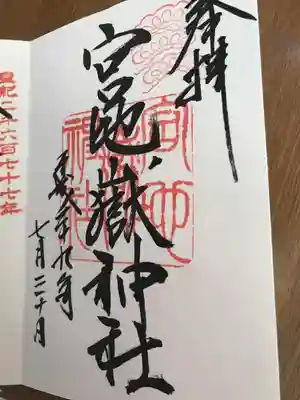 奉拝
宮地嶽神社
平成二十九年
七月二十日
皇紀二千六百七十七年